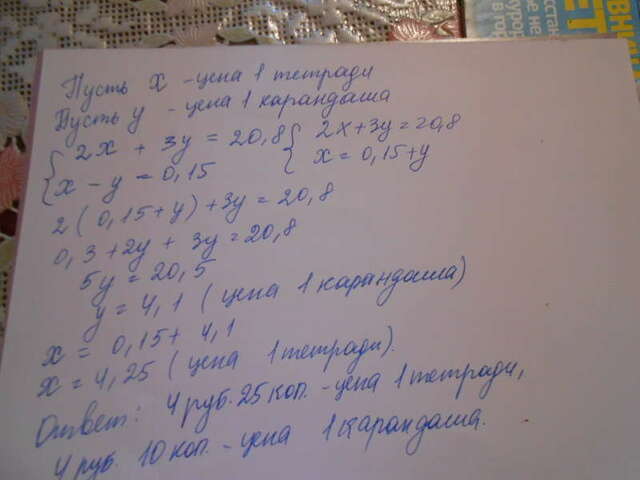 Пусть x - цена 1 тетради
Пусть y - цена 1 карандаша
{ 2x + 3y = 20,8 { 2x+3y=20,8
x - y = 0,15 x = 0,15+y
2(0,15+y)+3y=20,8
0,3+2y+3y=20,8
5y=20,5
y=4,1 (цена 1 карандаша)
x = 0,15+4,1
x=4,25 (цена 1 тетради).
Ответ: 4 руб. 25 коп. - цена 1 тетради,
4 руб. 10 коп. - цена 1 карандаша.